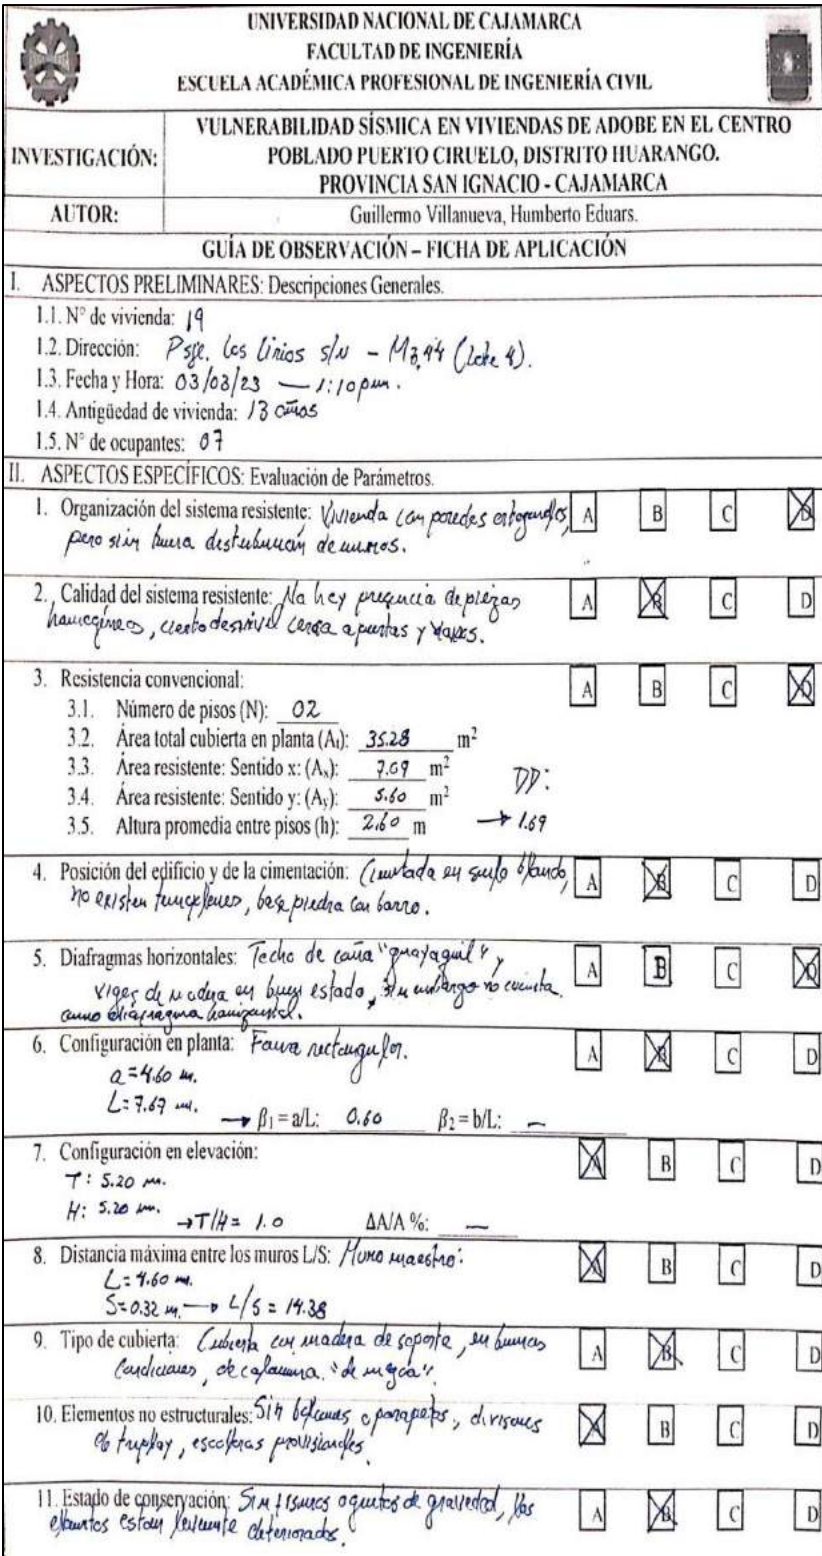 UNIVERSIDAD NACIONAL DE CAJAMARCA
FACULTAD DE INGENIERÍA
ESCUELA ACADÉMICA PROFESIONAL DE INGENIERÍA CIVIL
INVESTIGACIÓN:
VULNERABILIDAD SÍSMICA EN VIVIENDAS DE ADOBE EN EL CENTRO
POBLADO PUERTO CIRUELO, DISTRITO HUARANGO.
PROVINCIA SAN IGNACIO - CAJAMARCA
AUTOR: Guillermo Villanueva, Humberto Eduars.
GUÍA DE OBSERVACIÓN – FICHA DE APLICACIÓN
I. ASPECTOS PRELIMINARES: Descripciones Generales.
1.1. N° de vivienda: 19
1.2. Dirección: Psje. Los Lirios s/N - Mz.44 (Lote 4).
1.3. Fecha y Hora: 03/03/23 — 1:10 pm.
1.4. Antigüedad de vivienda: 13 años
1.5. N° de ocupantes: 07
II. ASPECTOS ESPECÍFICOS: Evaluación de Parámetros.
1. Organización del sistema resistente: Vivienda con paredes ortogonales, A B C D
pero sin buena distribución de muros.
2. Calidad del sistema resistente: No hay presencia de piezas A B C D
homogéneas, cierto desnivel cerca a puertas y vanos.
3. Resistencia convencional: A B C D
3.1. Número de pisos (N): 02
3.2. Área total cubierta en planta (At): 35.28 m²
3.3. Área resistente: Sentido x: (Ax): 7.09 m²
DD:
3.4. Área resistente: Sentido y: (Ay): 5.60 m²
3.5. Altura promedia entre pisos (h): 2.60 m → 1.69
4. Posición del edificio y de la cimentación: Cimentada en suelo blando, A B C D
no existen, base piedra con barro.
5. Diafragmas horizontales: Techo de caña "guayaquil" y A B C D
vigas de madera en buen estado, sin embargo no cuenta
como diafragma horizontal.
6. Configuración en planta: Forma rectangular. A B C D
a = 4.60 m.
L: 7.67 m.
→ β1 = a/L: 0.60 β2 = b/L: —
7. Configuración en elevación: A B C D
T: 5.20 m.
H: 5.20 m.
→ T/H = 1.0 ΔA/A %: —
8. Distancia máxima entre los muros L/S: Muro maestro: A B C D
L = 4.60 m.
S = 0.32 m. → L/S = 14.38
9. Tipo de cubierta: Cubierta con madera de soporte, en buenas A B C D
condiciones, de calamina
10. Elementos no estructurales: Sin balcones o parapetos, divisiones A B C D
de triplay, escaleras provisionales.
11. Estado de conservación: Sin fisuras o grietas de gravedad, los A B C D
elementos están levemente deteriorados.